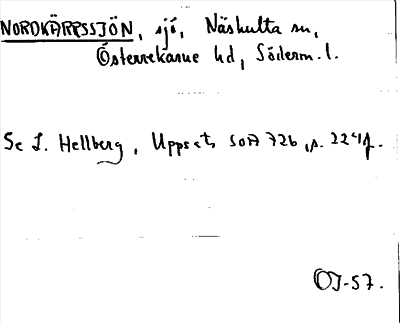 NORDKÄRPSSJÖN, sjö, Näshulta sn,
Österrekarne hd, Söderm. l.
Se L. Hellberg, Upps.st, SOÄ 726, s. 224f.
OJ-57.